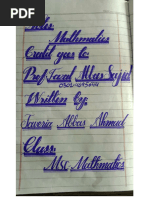 Mathematics
Credit goes to:
Prof. Jawad Abbas Sajid
Written By:
Javeria Abbas Ahmad
Class:
MSc. Mathematics